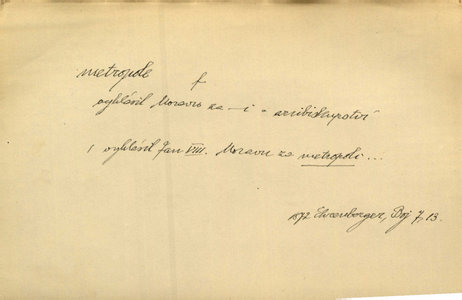 metropole f
vyhlásil Moravu za – i = arcibiskupství
1 vyhlásil Jan VIII. Moravu za metropoli...
1872 Ehrenberger, Boj 7, 13.